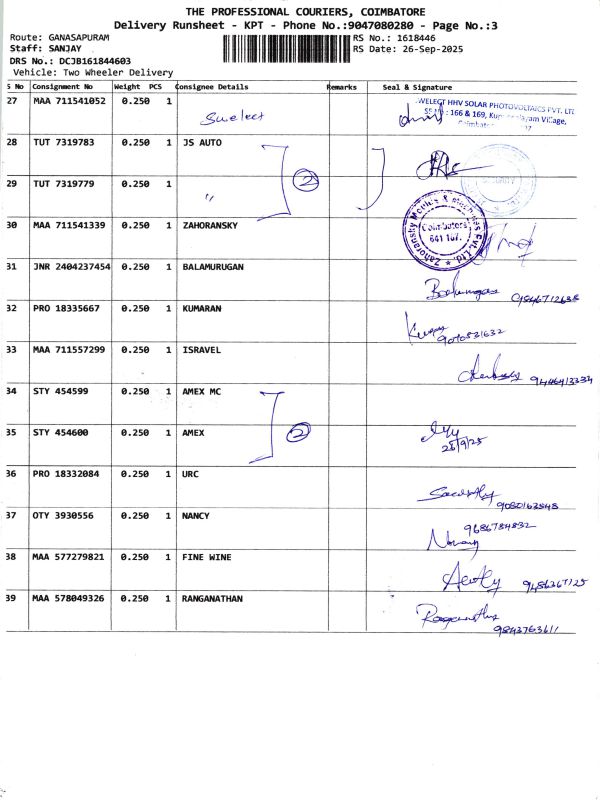 THE PROFESSIONAL COURIERS, COIMBATORE
Delivery Runsheet - KPT - Phone No.:9047080280 - Page No.:3
Route: GANASAPURAM RS No.: 1618446
Staff: SANJAY RS Date: 26-Sep-2025
DRS No.: DCJB161844603
Vehicle: Two Wheeler Delivery
S No Consignment No Weight PCS Consignee Details Remarks Seal & Signature
27 MAA 711541052 0.250 1 Swelect
SWELECT HHV SOLAR PHOTOVOLTAICS PVT. LTD
: 166 & 169, Village,
28 TUT 7319783 0.250 1 JS AUTO
29 TUT 7319779 0.250 1 "
2
30 MAA 711541339 0.250 1 ZAHORANSKY
Zahoransky Moulds & Machines Pvt. Ltd.
Coimbatore
641 107.
31 JNR 2404237454 0.250 1 BALAMURUGAN
32 PRO 18335667 0.250 1 KUMARAN
33 MAA 711557299 0.250 1 ISRAVEL
34 STY 454599 0.250 1 AMEX MC
35 STY 454600 0.250 1 AMEX
2
26/9/25
36 PRO 18332084 0.250 1 URC
37 OTY 3930556 0.250 1 NANCY
9686784832
38 MAA 577279821 0.250 1 FINE WINE
39 MAA 578049326 0.250 1 RANGANATHAN
9843763611